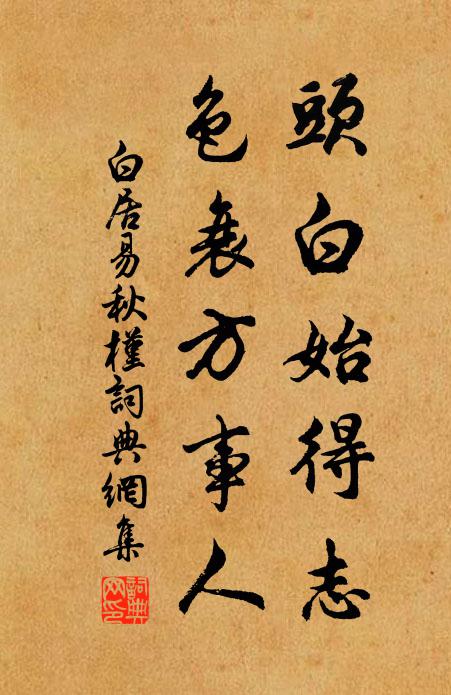 頭白始得志
色衰方事人
白居易秋槿詞典網集
詞典網印